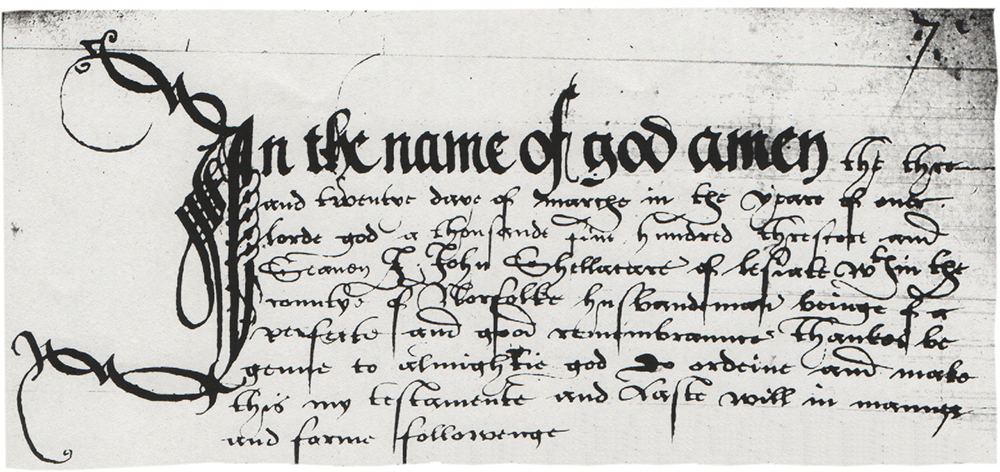 7
In the name of god amen the three
and twentye daye of marche in the yeare of oure
lorde god a thousande five hundred threscore and
Seaven I John Shellacare of lesiate wthin the
countye of Norfolke husbandeman beinge of a
perfecte and good remembraunce thankes be
gevine to almightie god do ordeine and make
this my testamente and laste will in manner
and forme followenge